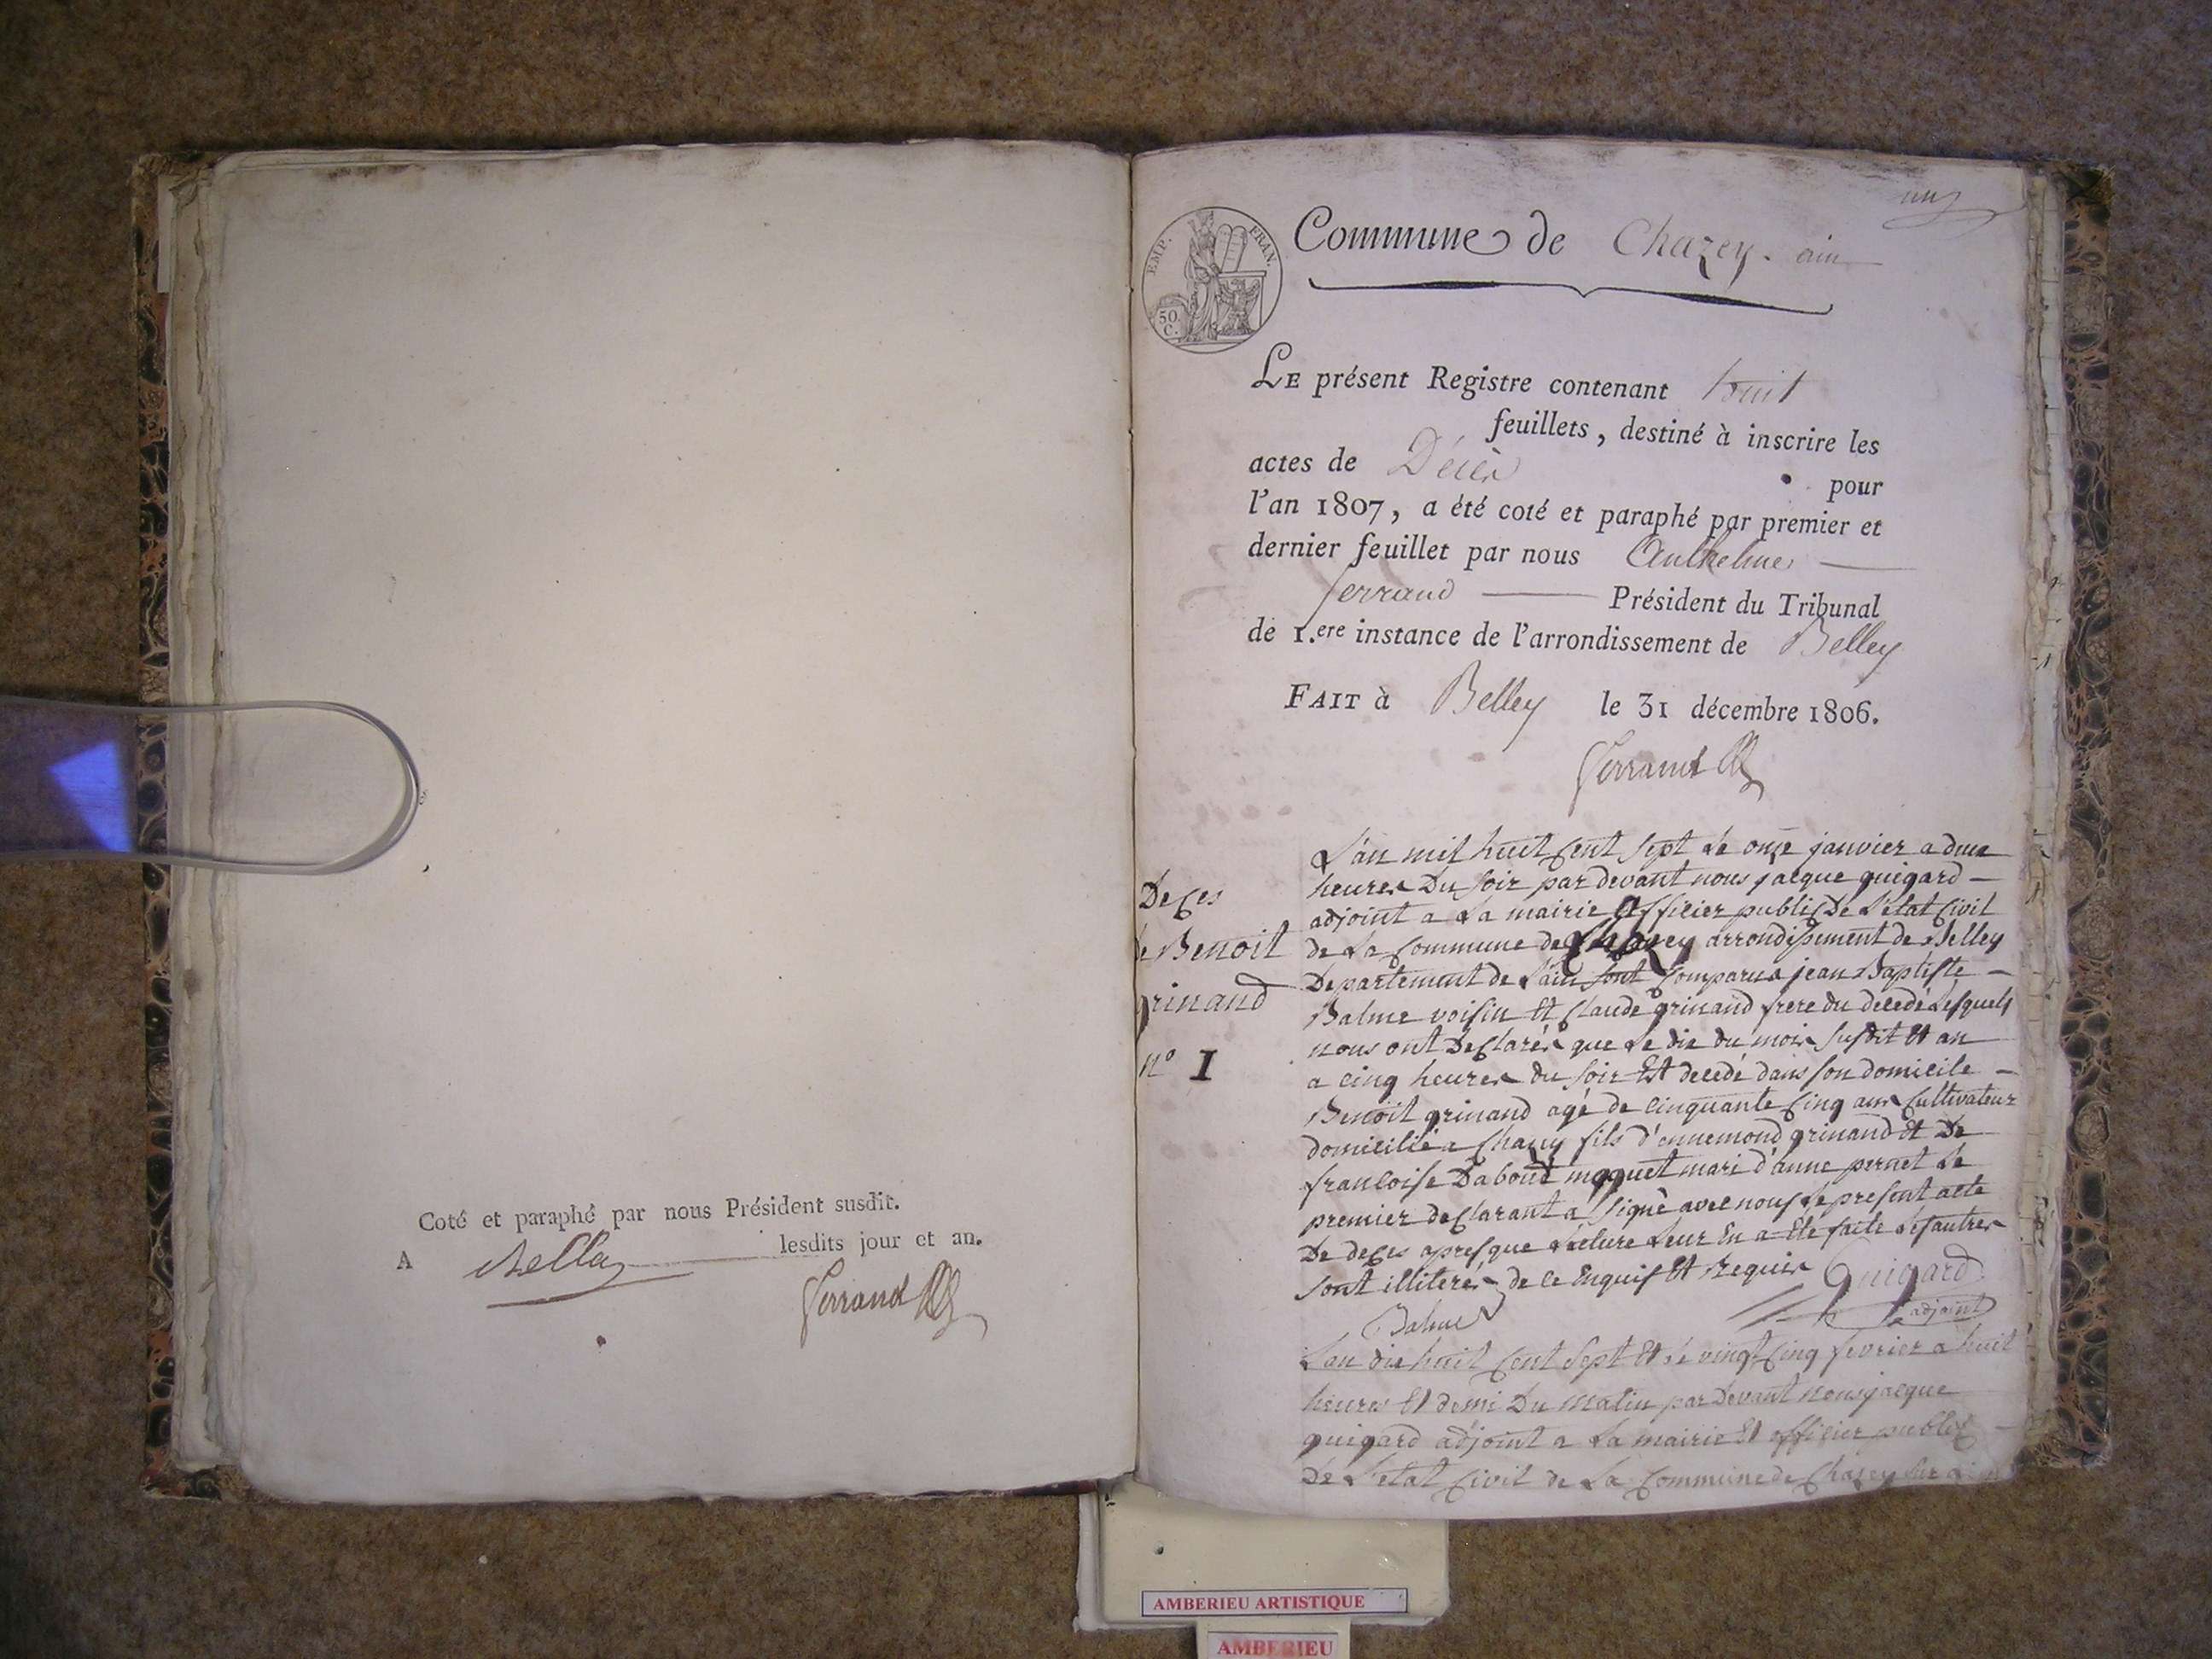 Coté et paraphé par nous Président susdit.
A Belley lesdits jour et an.
Ferrand
un
EMP. FRAN.
50 C.
Commune de Chazey. ain
LE présent Registre contenant huit
feuillets, destiné à inscrire les
actes de Décès pour
l'an 1807, a été coté et paraphé par premier et
dernier feuillet par nous Anthelme
ferrand Président du Tribunal
de 1.ere instance de l'arrondissement de Belley
FAIT à Belley le 31 décembre 1806.
Ferrand
Deces
de Benoit
grinand
n° 1
L'an mil huit cent sept le onze janvier a deux
heures Du soir par devant nous jacque guigard
adjoint a La mairie officier public De L'état Civil
de La Commune de Chazey arrondissement de Belley
Departement de L'ain sont Comparus jean Baptiste
Balme voisin Et Claude grinand frere du decedé Lesquels
nous ont Declarés que Le dix du mois susdit Et an
a cinq heures du soir Est decedé dans son domicile
Benoit grinand agé de cinquante Cinq ans Cultivateur
domicilié a Chazey fils d'ennemond grinand Et De
francoise Daboud mari d'anne pernet Le
premier declarant a signé avec nous Le present acte
De deces apres que Lecture Leur En a Eté faite Les autres
sont illiterés de ce Enquis Et Requis Guigard
Balme adjoint
L'an dix huit Cent Sept Et Le vingt Cinq fevrier a huit
heures Et demi Du Matin par Devant Nous jacque
guigard adjoint a La mairie Et officier public
De L'etat Civil de La Commune de Chazey sur ain
AMBERIEU ARTISTIQUE
AMBERIEU